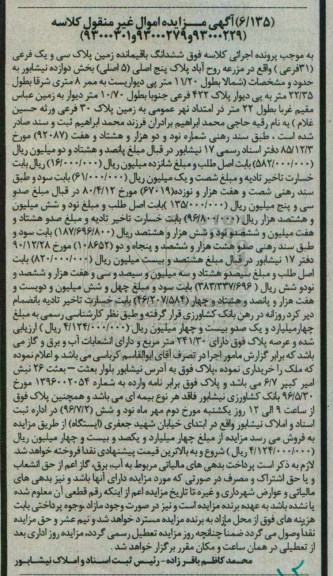 (۶/۱۳۵)آگهی مــزایده اموال غیر منقول کلاسه
(۹۳۰۰۰۲۲۹و۹۳۰۰۰۲۷۹و۹۳۰۰۰۳۰۱)
به موجب پرونده اجرائی کلاسه فوق ششدانگ باقیمانده زمین پلاک سی و یک فرعی
(۳۱فرعی) واقع در مزرعه روح آباد پلاک پنج اصلی (۵ اصلی) بخش دوازده نیشابور به
حدود و مشخصات (شمالا بطول ۱۱/۲۰ متر پی دیواریست به ممر ۸ متری شرقا بطول
۲۲/۳۵ متر به پی دیوار پلاک ۴۲۲ فرعی جنوبا بطول ۱۰/۷۰ متر دیوار به زمین عباس
مقیم غربا بطول ۲۲ متر در امتداد نهر عمومی به زمین پلاک ۳۰ فرعی ورثه حسین
غلام) به نام رقیه حاجی محمد ابراهیم برادران فرزند محمد ابراهیم ثبت و سند صادر
شده است ، طبق سند رهنی شماره نود و دو هزار و هشتاد و هفت (۹۲۰۸۷) مورخ
۸۵/۱۲/۳ دفتر اسناد رسمی ۱۷ نیشابور در قبال مبلغ پانصد و هشتاد و دو میلیون ریال
(۵۸۲/۰۰۰/۰۰۰) بابت اصل طلب و مبلغ شانزده میلیون ریال (۱۶/۰۰۰/۰۰۰) ریال بابت
خسارت تاخیر تادیه و مبلغ شصت و یک میلیون ریال (۶۱/۰۰۰/۰۰۰) بابت سود و طبق
سند رهنی شصت و هفت هزار و نوزده(۶۷۰۱۹) مورخ ۸۰/۴/۱۲ در قبال مبلغ صدو
سی و پنج میلیون ریال (۱۳۵/۰۰۰/۰۰۰) بابت اصل طلب و مبلغ نود و شش میلیون
و هشتصد هزار ریال (۹۶/۸۰۰/۰۰۰) بابت خسارت تاخیر تادیه و مبلغ صدو هشتاد و
هفت میلیون و ششصدو نود و شش هزار و هشتصد ریال (۱۸۷/۶۹۶/۸۰۰) بابت سود و
طبق سند رهنی صدو هشت هزار و ششصد و پنجاه و دو (۱۰۸۶۵۲) مورخ ۹۰/۱۲/۲۸
دفتر ۱۷ نیشابور در قبال مبلغ هشتصد و بیست میلیون ریال (۸۲۰/۰۰۰/۰۰۰) بابت
اصل طلب و مبلغ سیصدو هشتاد و سه میلیون و سیصد و سی و هفت هزار و ششصد و
نودو شش ریال (۳۸۳/۳۳۷/۶۹۶) بابت سود و مبلغ چهل و شش میلیون و دویست و
هفت هزار و پانصد و هشتاد و چهار (۴۶/۲۰۷/۵۸۴) بابت خسارت تاخیر تادیه بانضمام
دیر کرد روزانه در رهن بانک کشاورزی قرار گرفته و طبق نظر کارشناسی رسمی به مبلغ
چهارمیلیارد و یک صدو بیست و چهار میلیون ریال (۴/۱۲۴/۰۰۰/۰۰۰ ریال) ارزیابی
شده و عرصه پلاک فوق دارای ۲۴۱/۳۰ متر مربع و دارای انشعابات آب و برق و گاز می
باشد که برابر گزارش مامور اجرا در تصرف آقای ابوالقاسم کرباسی می باشد و اعلام نموده
که ملک را خریداری نموده پلاک فوق به آدرس نیشابور بلوار بعثت – بعثت ۲۶ نبش
امیر کبیر ۶/۷ می باشد و پلاک فوق برابر نامه وارده به شماره ۱۳۹۶۰۰۲۰۵۴ مورخ
۹۶/۵/۳۰ بانک کشاورزی نیشابور فاقد هر نوع بیمه ای می باشد و زمین پلاک فوق
از ساعت ۹ الی ۱۲ روز یکشنبه مورخ دوم مهر ماه نود و شش (۹۶/۷/۲) در اداره ثبت
اسناد و املاک نیشابور واقع در ابتدای خیابان شهید جعفری (ایستگاه) از طریق مزایده
به فروش می رسد مزایده از مبلغ چهار میلیارد و یکصد و بیست و چهار میلیون ریال
(۴/۱۲۴/۰۰۰/۰۰۰ ریال) شروع و به بالاترین قیمت پیشنهادی نقدا فروخته خواهد شد
لازم به ذکر است پرداخت بدهی های مالیاتی مربوط به آب، برق، گاز اعم از حق انشعاب
و یا حق اشتراک و مصرف در صورتی که مورد مزایده دارای آنها باشد و نیز بدهی های
مالیاتی و عوارض شهرداری و غیره تا تاریخ مزایده اعم از اینکه رقم قطعی آن معلوم شده
یا نشده باشد به عهده برنده مزایده است و نیز در صورت وجود مازاد،وجوه پرداختی بابت
هزینه های فوق از محل مازاد به برنده مزایده مسترد خواهد شد و نیم عشر و حق مزایده
نقدا وصول می گردد ضمنا چنانچه روز مزایده تعطیل رسمی گردد، مزایده روز اداری بعد
از تعطیلی در همان ساعت و مکان مقرر برگزار خواهد شد.
محمد کاظم باقرزاده - رئیس ثبت اسناد و املاک نیشابور